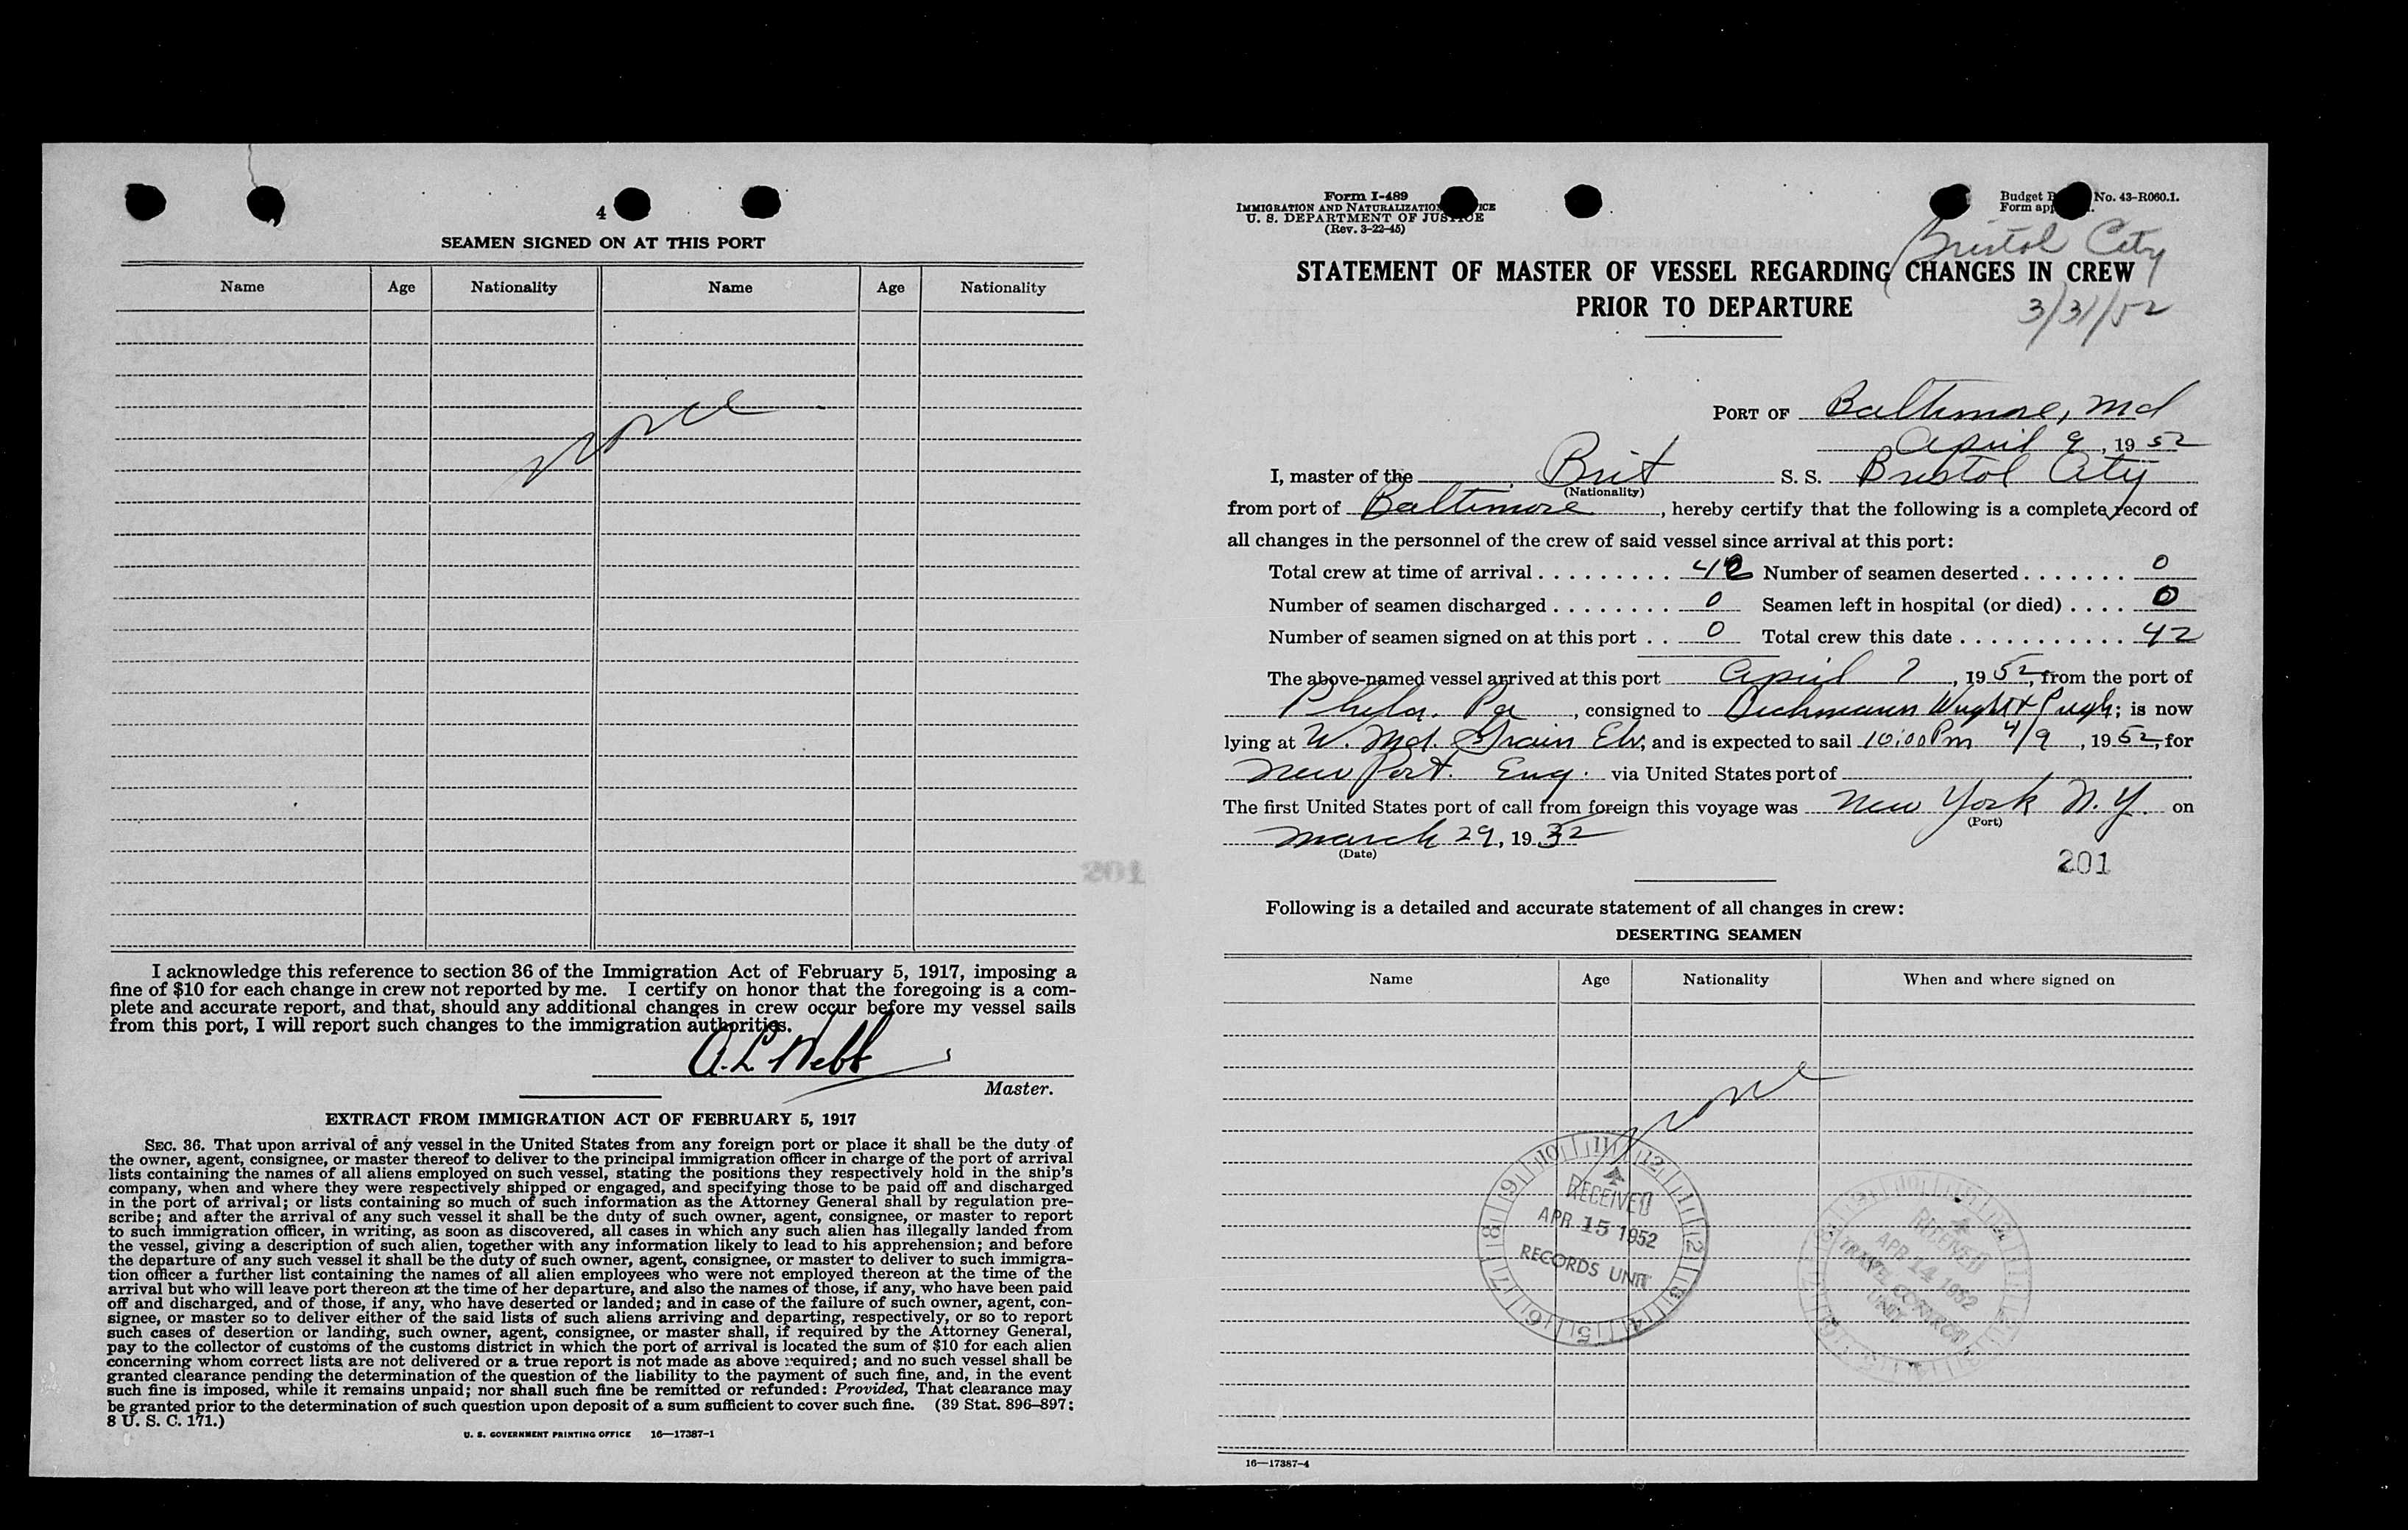 4
SEAMEN SIGNED ON AT THIS PORT
Name Age Nationality Name Age Nationality
none
I acknowledge this reference to section 36 of the Immigration Act of February 5, 1917, imposing a
fine of $10 for each change in crew not reported by me. I certify on honor that the foregoing is a com-
plete and accurate report, and that, should any additional changes in crew occur before my vessel sails
from this port, I will report such changes to the immigration authorities.
A. L. Webb
Master.
EXTRACT FROM IMMIGRATION ACT OF FEBRUARY 5, 1917
SEC. 36. That upon arrival of any vessel in the United States from any foreign port or place it shall be the duty of
the owner, agent, consignee, or master thereof to deliver to the principal immigration officer in charge of the port of arrival
lists containing the names of all aliens employed on such vessel, stating the positions they respectively hold in the ship's
company, when and where they were respectively shipped or engaged, and specifying those to be paid off and discharged
in the port of arrival; or lists containing so much of such information as the Attorney General shall by regulation pre-
scribe; and after the arrival of any such vessel it shall be the duty of such owner, agent, consignee, or master to report
to such immigration officer, in writing, as soon as discovered, all cases in which any such alien has illegally landed from
the vessel, giving a description of such alien, together with any information likely to lead to his apprehension; and before
the departure of any such vessel it shall be the duty of such owner, agent, consignee, or master to deliver to such immigra-
tion officer a further list containing the names of all alien employees who were not employed thereon at the time of the
arrival but who will leave port thereon at the time of her departure, and also the names of those, if any, who have been paid
off and discharged, and of those, if any, who have deserted or landed; and in case of the failure of such owner, agent, con-
signee, or master so to deliver either of the said lists of such aliens arriving and departing, respectively, or so to report
such cases of desertion or landing, such owner, agent, consignee, or master shall, if required by the Attorney General,
pay to the collector of customs of the customs district in which the port of arrival is located the sum of $10 for each alien
concerning whom correct lists are not delivered or a true report is not made as above required; and no such vessel shall be
granted clearance pending the determination of the question of the liability to the payment of such fine, and, in the event
such fine is imposed, while it remains unpaid; nor shall such fine be remitted or refunded: Provided, That clearance may
be granted prior to the determination of such question upon deposit of a sum sufficient to cover such fine. (39 Stat. 896–897;
8 U. S. C. 171.)
U. S. GOVERNMENT PRINTING OFFICE 16—17387-1
Form I-489
IMMIGRATION AND NATURALIZATION
U. S. DEPARTMENT OF JUSTICE
(Rev. 3-22-45)
Budget No. 43-R060.1.
Form
Bristol City
3/31/52
STATEMENT OF MASTER OF VESSEL REGARDING CHANGES IN CREW
PRIOR TO DEPARTURE
PORT OF Baltimore, Md
April 9, 1952
I, master of the Brit S. S. Bristol City
(Nationality)
from port of Baltimore, hereby certify that the following is a complete record of
all changes in the personnel of the crew of said vessel since arrival at this port:
Total crew at time of arrival . . . . . . . . . 42 Number of seamen deserted . . . . . . . 0
Number of seamen discharged . . . . . . . . 0 Seamen left in hospital (or died) . . . . 0
Number of seamen signed on at this port . . 0 Total crew this date . . . . . . . . . . . 42
The above-named vessel arrived at this port April 7, 1952, from the port of
Phila. Pa, consigned to Wright & Pugh; is now
lying at W. Md. Grain Elv, and is expected to sail 10:00 Pm 4/9, 1952, for
New Port. Eng. via United States port of
The first United States port of call from foreign this voyage was New York N.Y. on
(Port)
March 29, 1952
(Date)
201
Following is a detailed and accurate statement of all changes in crew:
DESERTING SEAMEN
Name Age Nationality When and where signed on
none
RECEIVED
APR 15 1952
RECORDS UNIT
RECEIVED
APR 14 1952
TRAVEL CONTROL
UNIT
16—17387-4